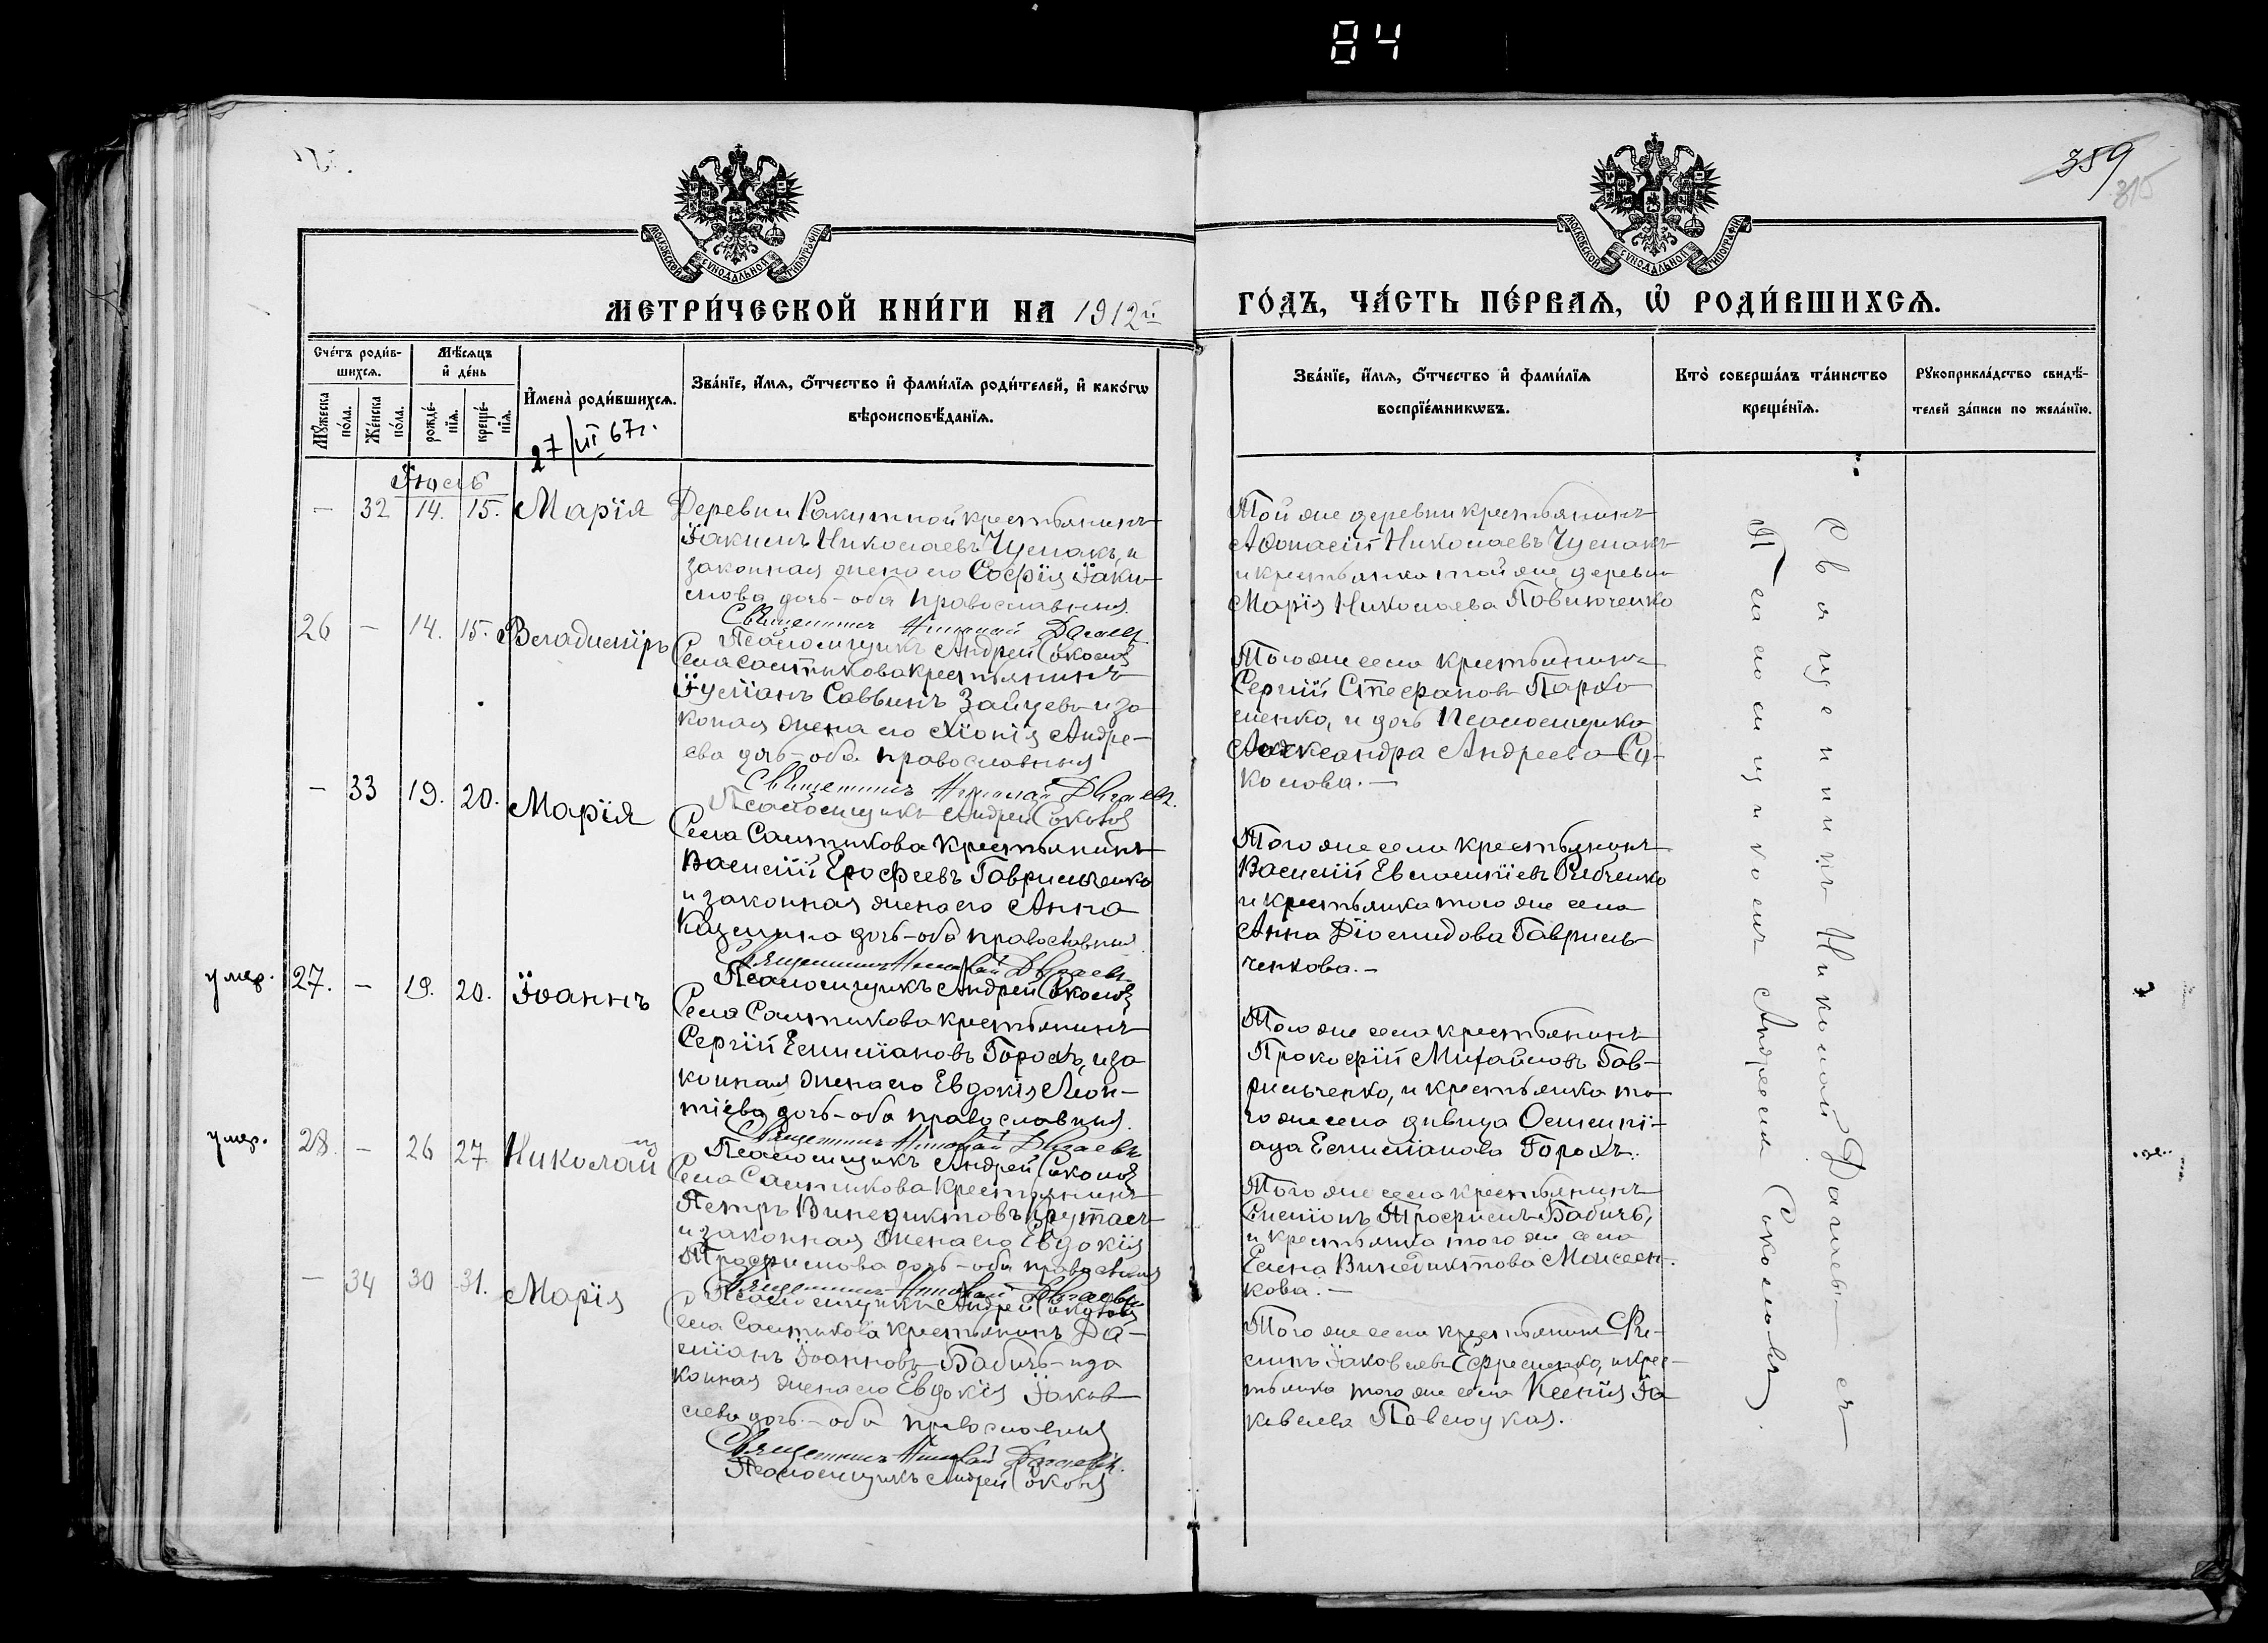 84
359
315
МОСКОВСКОЙ СУНОДАЛЬНОЙ ТИПОГРАФІИ
МОСКОВСКОЙ СУНОДАЛЬНОЙ ТИПОГРАФІИ
МЕТРИ́ЧЕСКОЙ КНИ́ГИ НА 1912й
ГО́ДЪ, ЧА́СТЬ ПЕ́РВАѦ, Ѡ҆ РОДИ́ВШИХСѦ.
Сче́тъ роди́в-
шихсѧ.
Мѣ́сѧцъ
и҆ де́нь
Мꙋ́жеска
по́ла.
Же́нска
по́ла.
рожде́-
нїѧ.
креще́-
нїѧ.
И҆мена̀ роди́вшихсѧ.
27/III 67г.
Зва́нїе, и҆́мѧ, ѻ҆́тчество и҆ фами́лїѧ роди́телей, и҆ како́гѡ
вѣроисповѣ́данїѧ.
Зва́нїе, и҆́мѧ, ѻ҆́тчество и҆ фами́лїѧ
воспрїе́мникѡвъ.
Кто̀ соверша́лъ та́инство
креще́нїѧ.
Рꙋкоприкла́дство свидѣ́-
телей за́писи по жела́нїю.
Іюль
— 32 14. 15. Марія
Деревни Ракитной крестьянинъ
Іакимъ Николаевъ Чумакъ, и
законная жена его Софія Іаки-
мова дочь-оба православныя
Священникъ Николай Дагаевъ
Псаломщикъ Андрей Соколов
Той же деревни крестьянинъ
Афонасій Николаевъ Чумакъ
и крестьянка той же деревни
Марія Николаева Павлюченко
26 — 14. 15. Владиміръ
Села Салтыкова крестьянинъ
Іуліанъ Саввинъ Зайцевъ и за
коная жена его Хіонія Андре-
ева дочь-оба православныя
Священникъ Николай Дагаевъ.
Псаломщикъ Андрей Соколов
Того же села крестьянинъ
Сергій Стефановъ Пархо
менко, и дочь Псаломщика
Александра Андреева Со-
колова.—
— 33 19. 20. Марія
Села Салтыкова крестьянинъ
Василій Ерофеевъ Гаврильченко
и законная жена его Анна
Казмина дочь-оба православныя
Священникъ Николай Дагаевъ
Псаломщикъ Андрей Соколов
Того же села крестьянинъ
Василій Евлампіевъ Рябченко
и крестьянка того же села
Анна Діомидова Гавриль-
ченкова.—
умер. 27. — 19. 20. Іоаннъ
Села Салтыкова крестьянинъ
Сергій Емиліановъ Горохъ, и за
конная жена его Евдокія Леон-
тіева дочь-оба православныя.
Священникъ Николай Дагаевъ
Псаломщикъ Андрей Соколов
Того же села крестьянинъ
Прокофій Михайловъ Гав-
рильченко, и крестьянка то-
го же села дивица Олимпі-
ада Емиліанова Горохъ.
умер. 28. — 26 27. Николай
Села Салтыкова крестьянинъ
Петръ Винедиктовъ
и законная жена его Евдокія
Трофимова дочь-оба православныя
Священникъ Николай Дагаевъ
Псаломщикъ Андрей Соколов
Того же села крестьянинъ
Симіонъ Трофимъ Бабичъ,
и крестьянка того же села
Елена Винедиктова Моисеен-
кова.—
— 34 30 31. Марія
Села Салтыкова крестьянинъ Да-
міанъ Іоанновъ Бабичъ-и за
конная жена его Евдокія Іаков
лева дочь-оба православныя
Священникъ Николай Дагаевъ.
Псаломщикъ Андрей Соколов
Того же села крестьянинъ Фи-
липъ Іаковлевъ Ефременко, и крес-
тьянка того же села Ксенія Іа
ковлева Павлоцкая.
Священникъ Николай Дагаевъ
Псаломщикъ Андрей Соколовъ.